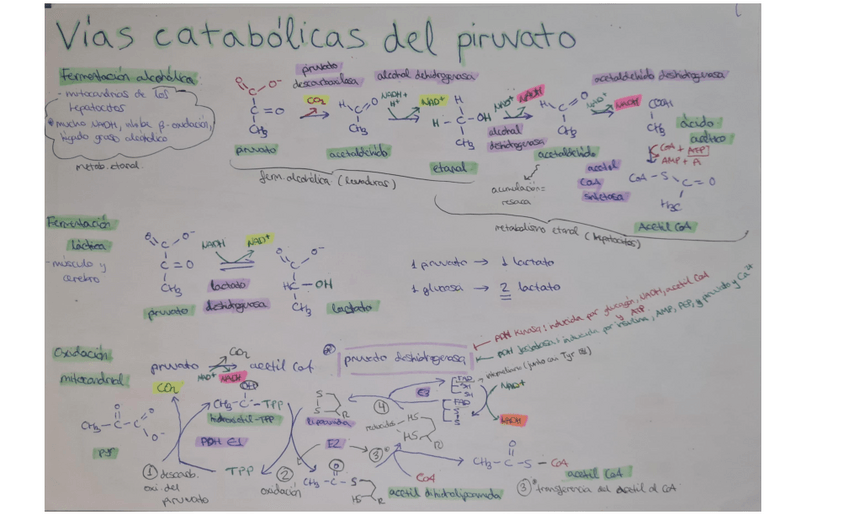 Vías catabólicas del piruvato
Fermentación alcohólica
- mitocondrias de los
hepatocitos
mucho NADH, inhibe β-oxidación,
hígado graso alcohólico
metab. etanol
piruvato
descarboxilasa
alcohol dehidrogenasa
acetaldehído deshidrogenasa
CO₂
NADH+
H⁺
NAD⁺
NAD⁺ NADH
NAD⁺
NADH
COOH
CH₃
piruvato
acetaldehído
etanol
alcohol
deshidrogenasa
acetaldehído
ácido
acético
CoA + ATP
AMP + Pi
acetil
CoA
sintetasa
CoA - S - C = O
H₃C
Acetil CoA
ferm. alcohólica (levaduras)
acumulación =
resaca
metabolismo etanol (hepatocitos)
Fermentación
láctica
- músculo y
cerebro
NADH
NAD⁺
lactato
deshidrogenasa
piruvato
lactato
1 piruvato → 1 lactato
1 glucosa → 2 lactato
Oxidación
mitocondrial
piruvato
CO₂
NAD⁺ NADH
acetil CoA
piruvato deshidrogenasa
PDH kinasa: inducida por glucagón, NADH, acetil CoA
y ATP
PDH fosfatasa: inducida por insulina, AMP, PEP, y piruvato y Ca²⁺
CO₂
CH₃ - C - TPP
hidroxietil-TPP
PDH E1
PYR
TPP
1 descarb.
oxi. del
piruvato
2
oxidación
lipoamida
E2
3
4
E3
FAD
SH
SH
FAD
S
S
NAD⁺
NADH
HS
HS
R
CH₃ - C - S
HS
R
CoA
acetil dihidrolipoamida
CH₃ - C - S - CoA
acetil CoA
3 transferencia del acetil al CoA